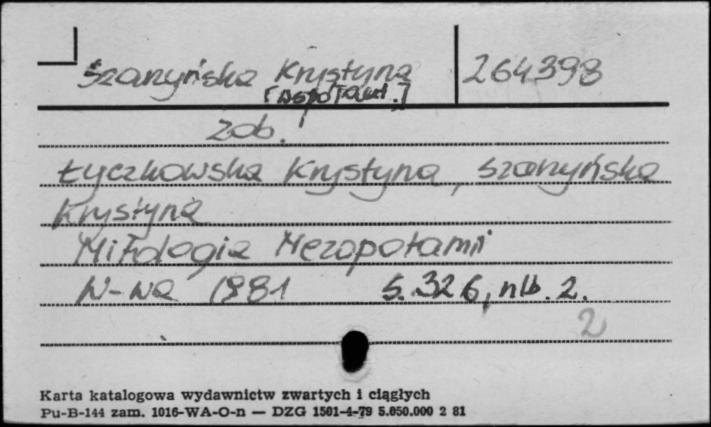 Szarzyńska Krystyna 264398
[współaut.]
zob.
Łyczkowska Krystyna, Szarzyńska
Krystyna
Mitologia Mezopotamii
W-wa 1981 s. 326, nlb. 2.
2
Karta katalogowa wydawnictw zwartych i ciągłych
Pu-B-144 zam. 1016-WA-O-n — DZG 1501-4-79 5.050.000 2 81